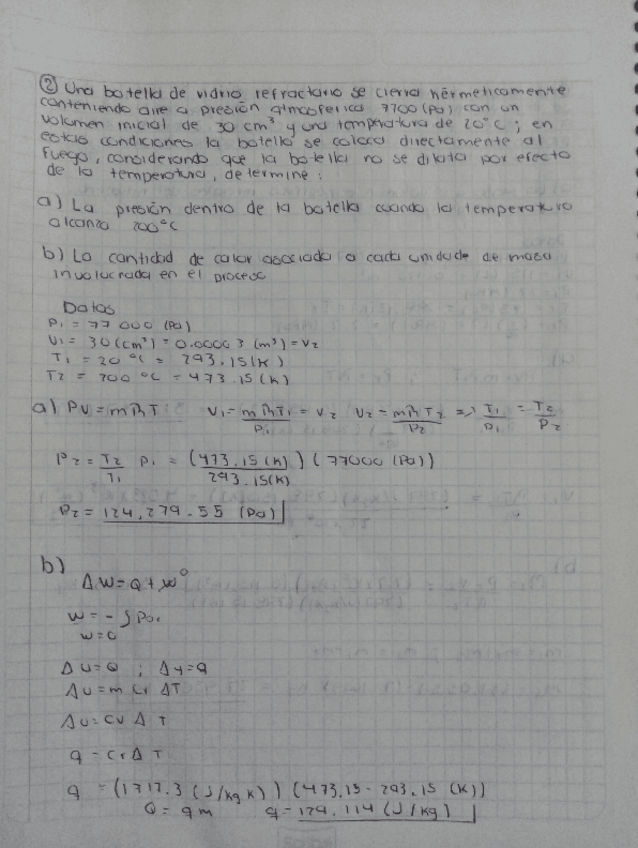 ② Una botella de vidrio refractario se cierra hérmeticamente
conteniendo aire a presión atmosferica 7700 (Pa) con un
volumen inicial de 30 cm³ y una temperatura de 20°C; en
estas condiciones la botella se coloca directamente al
fuego, considerando que la botella no se dilata por efecto
de la temperatura, determine:
a) La presión dentro de la botella cuando la temperatura
alcanza 200°C
b) La cantidad de calor asociada a cada unidade de masa
involucrada en el proceso
Datos
P1 = 77 000 (Pa)
V1 = 30 (cm³) = 0.00003 (m³) = V2
T1 = 20 °C = 293.15 (K)
T2 = 200 °C = 473.15 (K)
a) PV = mRT V1 = mRT1/P1 = V2 V2 = mRT2/P2 => T1/P1 = T2/P2
P2 = T2/T1 P1 = (473.15 (K)) (77000 (Pa)) / 293.15(K)
P2 = 124,279.55 (Pa)
b)
ΔW = Q + W⁰
W = - ∫
W = 0
ΔU = Q ; Δ = q
ΔU = m Cv ΔT
ΔU = CV Δ T
q = Cv Δ T
q = (717.3 (J/kg K)) (473.15 - 293.15 (K))
Q = qm q = 129,114 (J/kg)